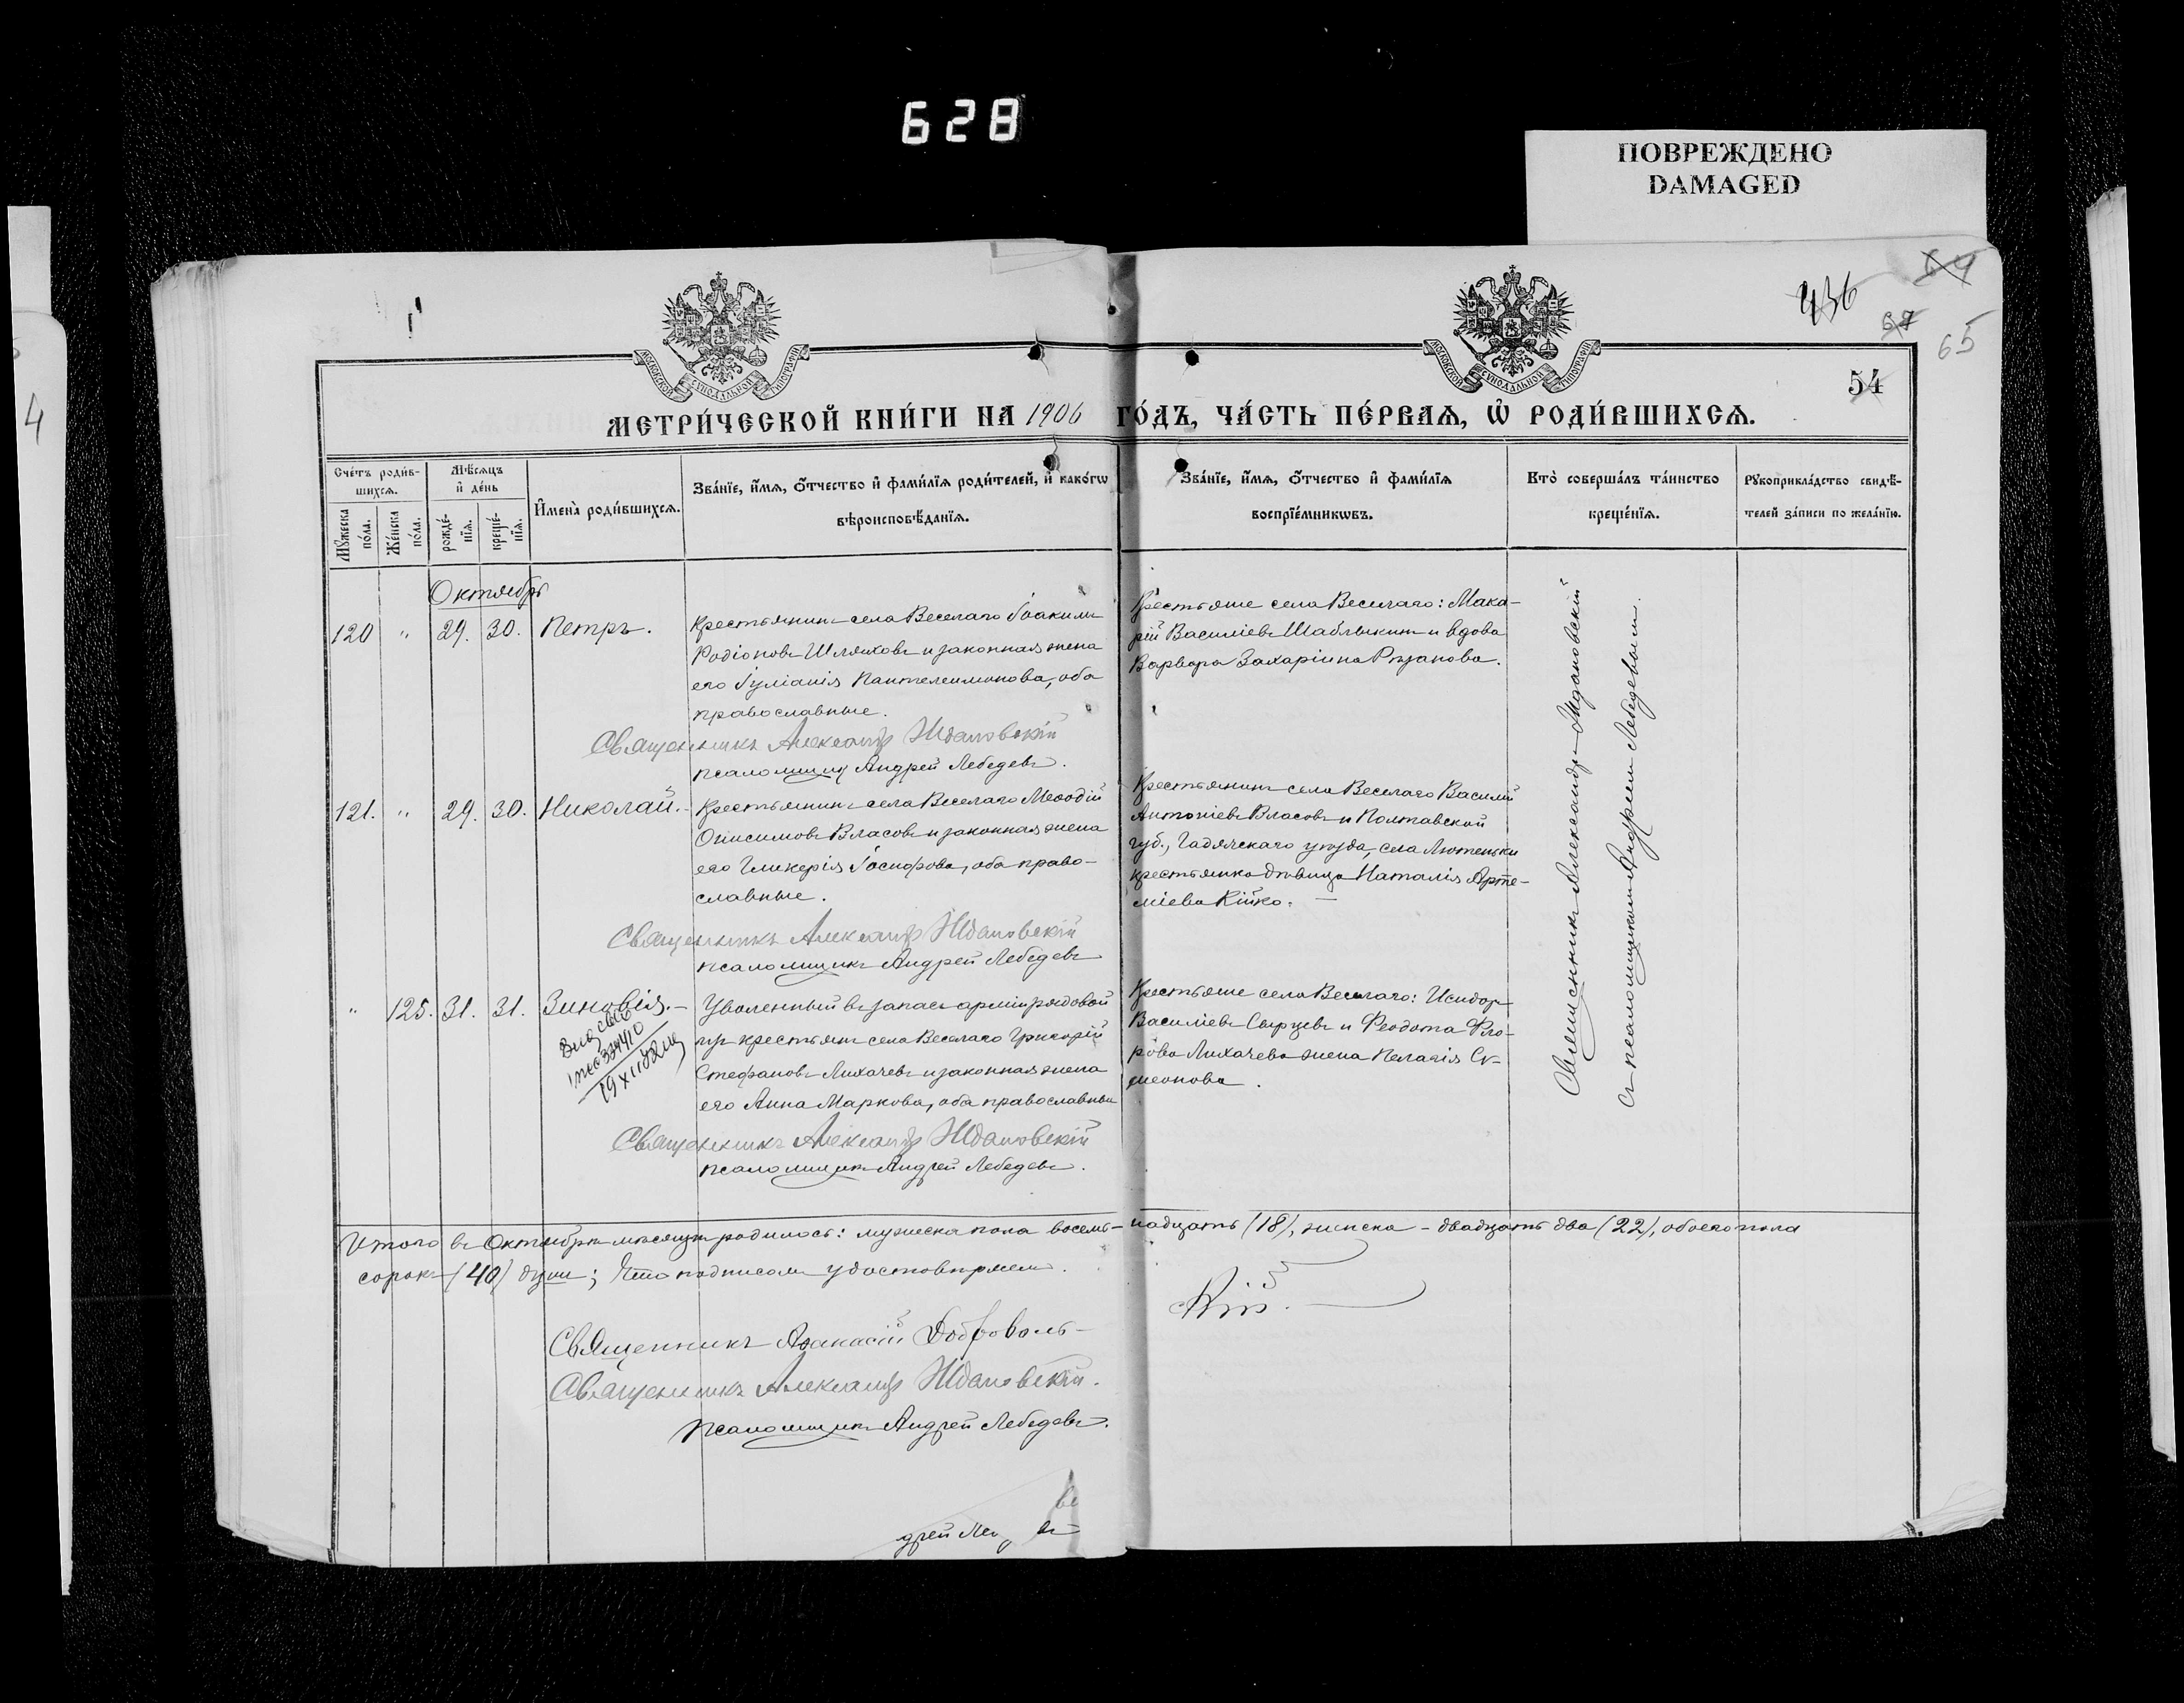 628
ПОВРЕЖДЕНО
DAMAGED
436
64
67
65
54
МОСКОВСКОЙ СѴНОДАЛЬНОЙ ТИПОГРАФІИ
МОСКОВСКОЙ СѴНОДАЛЬНОЙ ТИПОГРАФІИ
МЕТРИ́ЧЕСКОЙ КНИ́ГИ НА 1906 ГО́ДЪ, ЧА́СТЬ ПЕ́РВАѦ, Ѡ҆ РОДИ́ВШИХСѦ.
Сче́тъ роди́в-
шихсѧ.
Мꙋ́жеска по́ла.
Же́нска по́ла.
Мѣ́сѧцъ
и҆ де́нь
рожде́-
нїѧ.
креще́-
нїѧ.
И҆мена̀ роди́вшихсѧ.
Зва́нїе, и҆́мѧ, ѻ҆́тчество и҆ фами́лїѧ роди́телей, и҆ како́гѡ
вѣроисповѣ́данїѧ.
Зва́нїе, и҆́мѧ, ѻ҆́тчество и҆ фами́лїѧ
воспрїе́мникѡвъ.
Кто̀ соверша́лъ та́инство
креще́нїѧ.
Рꙋкоприкла́дство свидѣ́-
телей за́писи по жела́нїю.
Октябрь
120 " 29. 30. Петръ.
Крестьянинъ села Веселаго Іоакимъ
Родіоновъ Шляховъ и законная жена
его Іуліанія Пантелеимонова, оба
православные.
Священникъ Александръ Ждановскій
псаломщикъ Андрей Лебедевъ.
Крестьяне села Веселаго: Мака-
рій Василіевъ Шаблыкинъ и вдова
Варвара Захаріина Рязанова.
121. " 29. 30. Николай.
Крестьянинъ села Веселаго Меѳодій
Онисимовъ Власовъ и законная жена
его Гликерія Іосифова, оба право-
славные.
Священникъ Александръ Ждановскій
псаломщикъ Андрей Лебедевъ
Крестьянинъ села Веселаго Василій
Антоніевъ Власовъ и Полтавской
губ., Гадячскаго уѣзда, села Лютеньки
крестьянка дѣвица Наталія Арте-
міева Кійко. —
" 125. 31. 31. Зиновія. —
19 XII
Уволенный въ запасъ арміи рядовой
изъ крестьянъ села Веселаго Григорій
Стефановъ Лихачевъ и законная жена
его Анна Маркова, оба православные
Священникъ Александръ Ждановскій
псаломщикъ Андрей Лебедевъ.
Крестьяне села Веселаго: Исидоръ
Василіевъ Сырцевъ и Феодота Фло-
рова Лихачева жена Пелагія Си-
меонова.
Священникъ Александръ Ждановскій
Съ псаломщикомъ Андреемъ Лебедевымъ.
Итого въ Октябрѣ мѣсяцѣ родилось: мужеска пола восемь-надцать (18), женска - двадцать два (22), обоего пола
сорокъ (40) душъ; Что подписомъ удостовѣряемъ.
Священникъ Аѳанасій Доброволь-
скій.
Священникъ Александръ Ждановскій.
псаломщикъ Андрей Лебедевъ.
дрей Ле